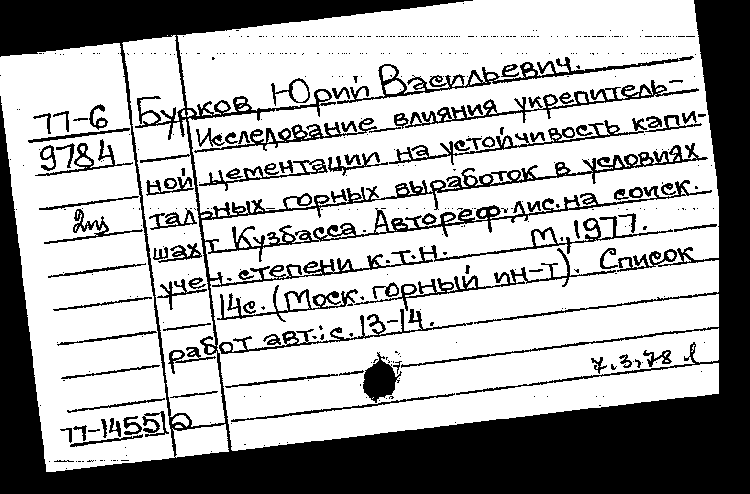 77-6
9784
2 экз
Бурков, Юрий Васильевич.
Исследование влияния укрепитель-
ной цементации на устойчивость капи-
тальных горных выработок в условиях
шахт Кузбасса. Автореф. дис. на соиск.
учен. степени к.т.н. М., 1977.
14с. (Моск. горный ин-т). Список
работ авт.: с. 13-14.
7.3.78
77-14551